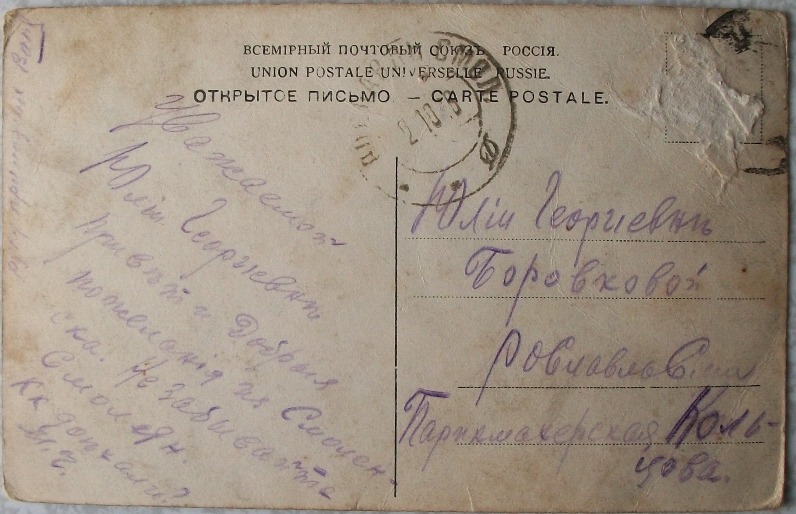 ВСЕМІРНЫЙ ПОЧТОВЫЙ СОЮЗЪ. РОССІЯ.
UNION POSTALE UNIVERSELLE RUSSIE.
ОТКРЫТОЕ ПИСЬМО. — CARTE POSTALE.
2 10
Уважаемой
Юліи Георгіевны
Привѣт и Добрыя
пожеланія из Смолен-
ска. Не забывайте
Смолян.
Кк доехали?
Юліи Георгіевны
Боровковой
Рославль См
Парикмахерская Коль-
цова.